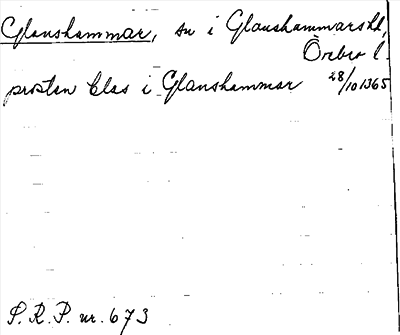 Glanshammar, sn i Glanshammars hd,
Örebro l.
prosten Clas i Glanshammar 28/10 1365
S. R. P. nr. 673